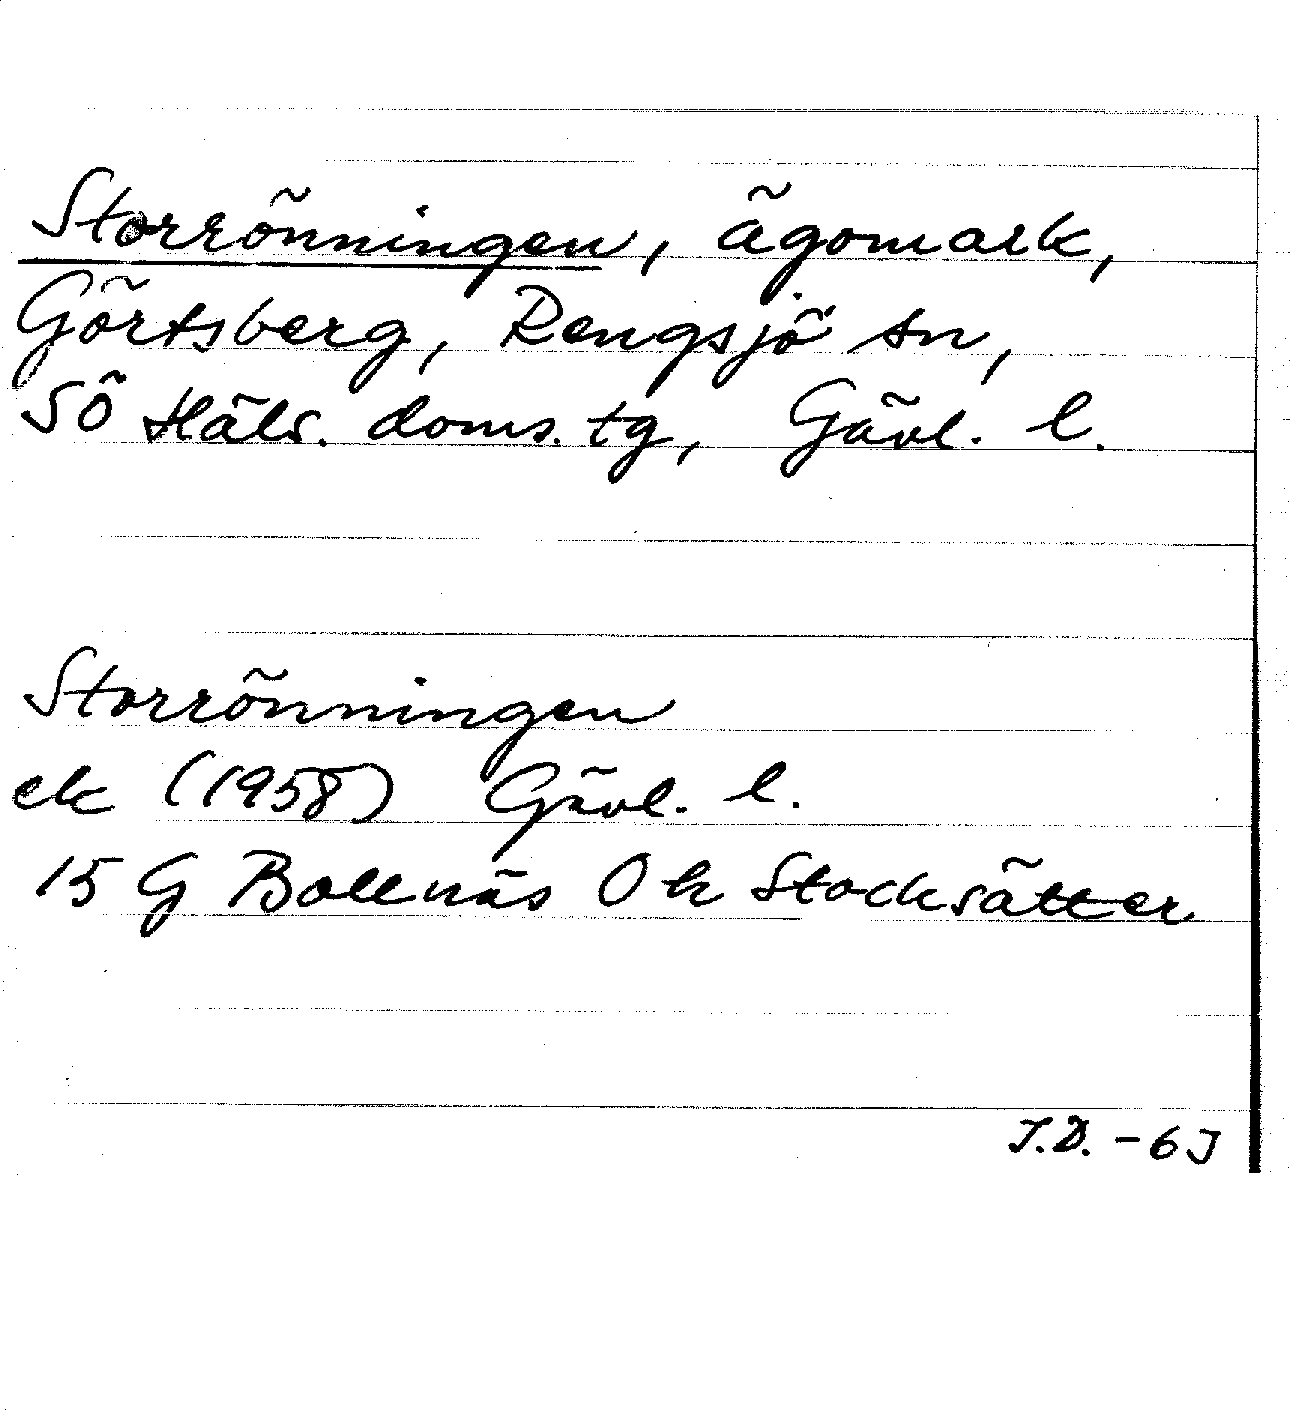 Storrönningen, ägomark,
Görtsberg, Rengsjö sn,
SÖ Häls. doms. tg, Gävl. l.
Storrönningen
ek (1958) Gävl. l.
15 G Bollnäs O h Stocksätter
J.D. -63